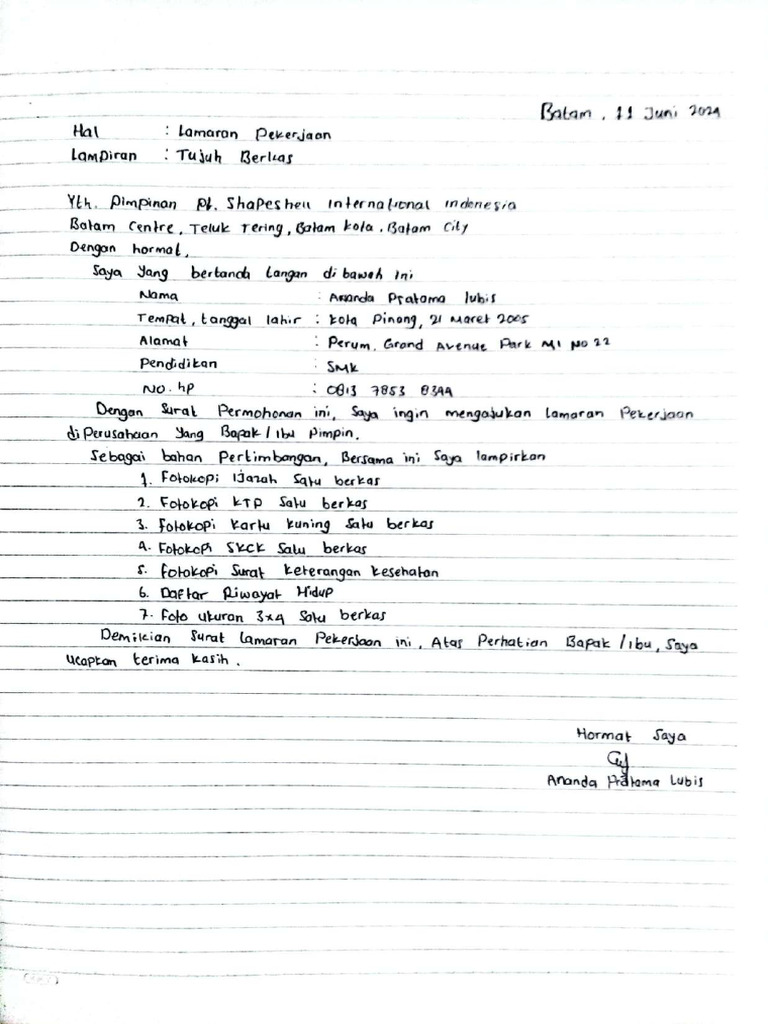 Batam, 11 Juni 2024
Hal : Lamaran Pekerjaan
Lampiran : Tujuh Berkas
Yth. Pimpinan Pt. Shapeshell International Indonesia
Batam Centre, Teluk Tering, Batam kota, Batam City
Dengan hormat,
Saya Yang bertanda tangan di bawah ini
Nama : Ananda Pratama lubis
Tempat, tanggal lahir : kota Pinang, 21 Maret 2005
Alamat : Perum. Grand Avenue Park M1 No 22
Pendidikan : SMK
NO. hp : 0813 7853 8344
Dengan Surat Permohonan ini, Saya ingin mengajukan lamaran Pekerjaan
diPerusahaan Yang Bapak/Ibu Pimpin.
Sebagai bahan Pertimbangan, Bersama ini Saya lampirkan
1. Fotokopi Ijazah Satu berkas
2. Fotokopi KTP Satu berkas
3. Fotokopi Kartu kuning Satu berkas
4. Fotokopi SKCK Satu berkas
5. Fotokopi Surat keterangan kesehatan
6. Daftar Riwayat Hidup
7. Foto ukuran 3x4 Satu berkas
Demikian Surat lamaran Pekerjaan ini, Atas Perhatian Bapak/Ibu, Saya
Ucapkan terima kasih.
Hormat Saya
Ananda Pratama Lubis